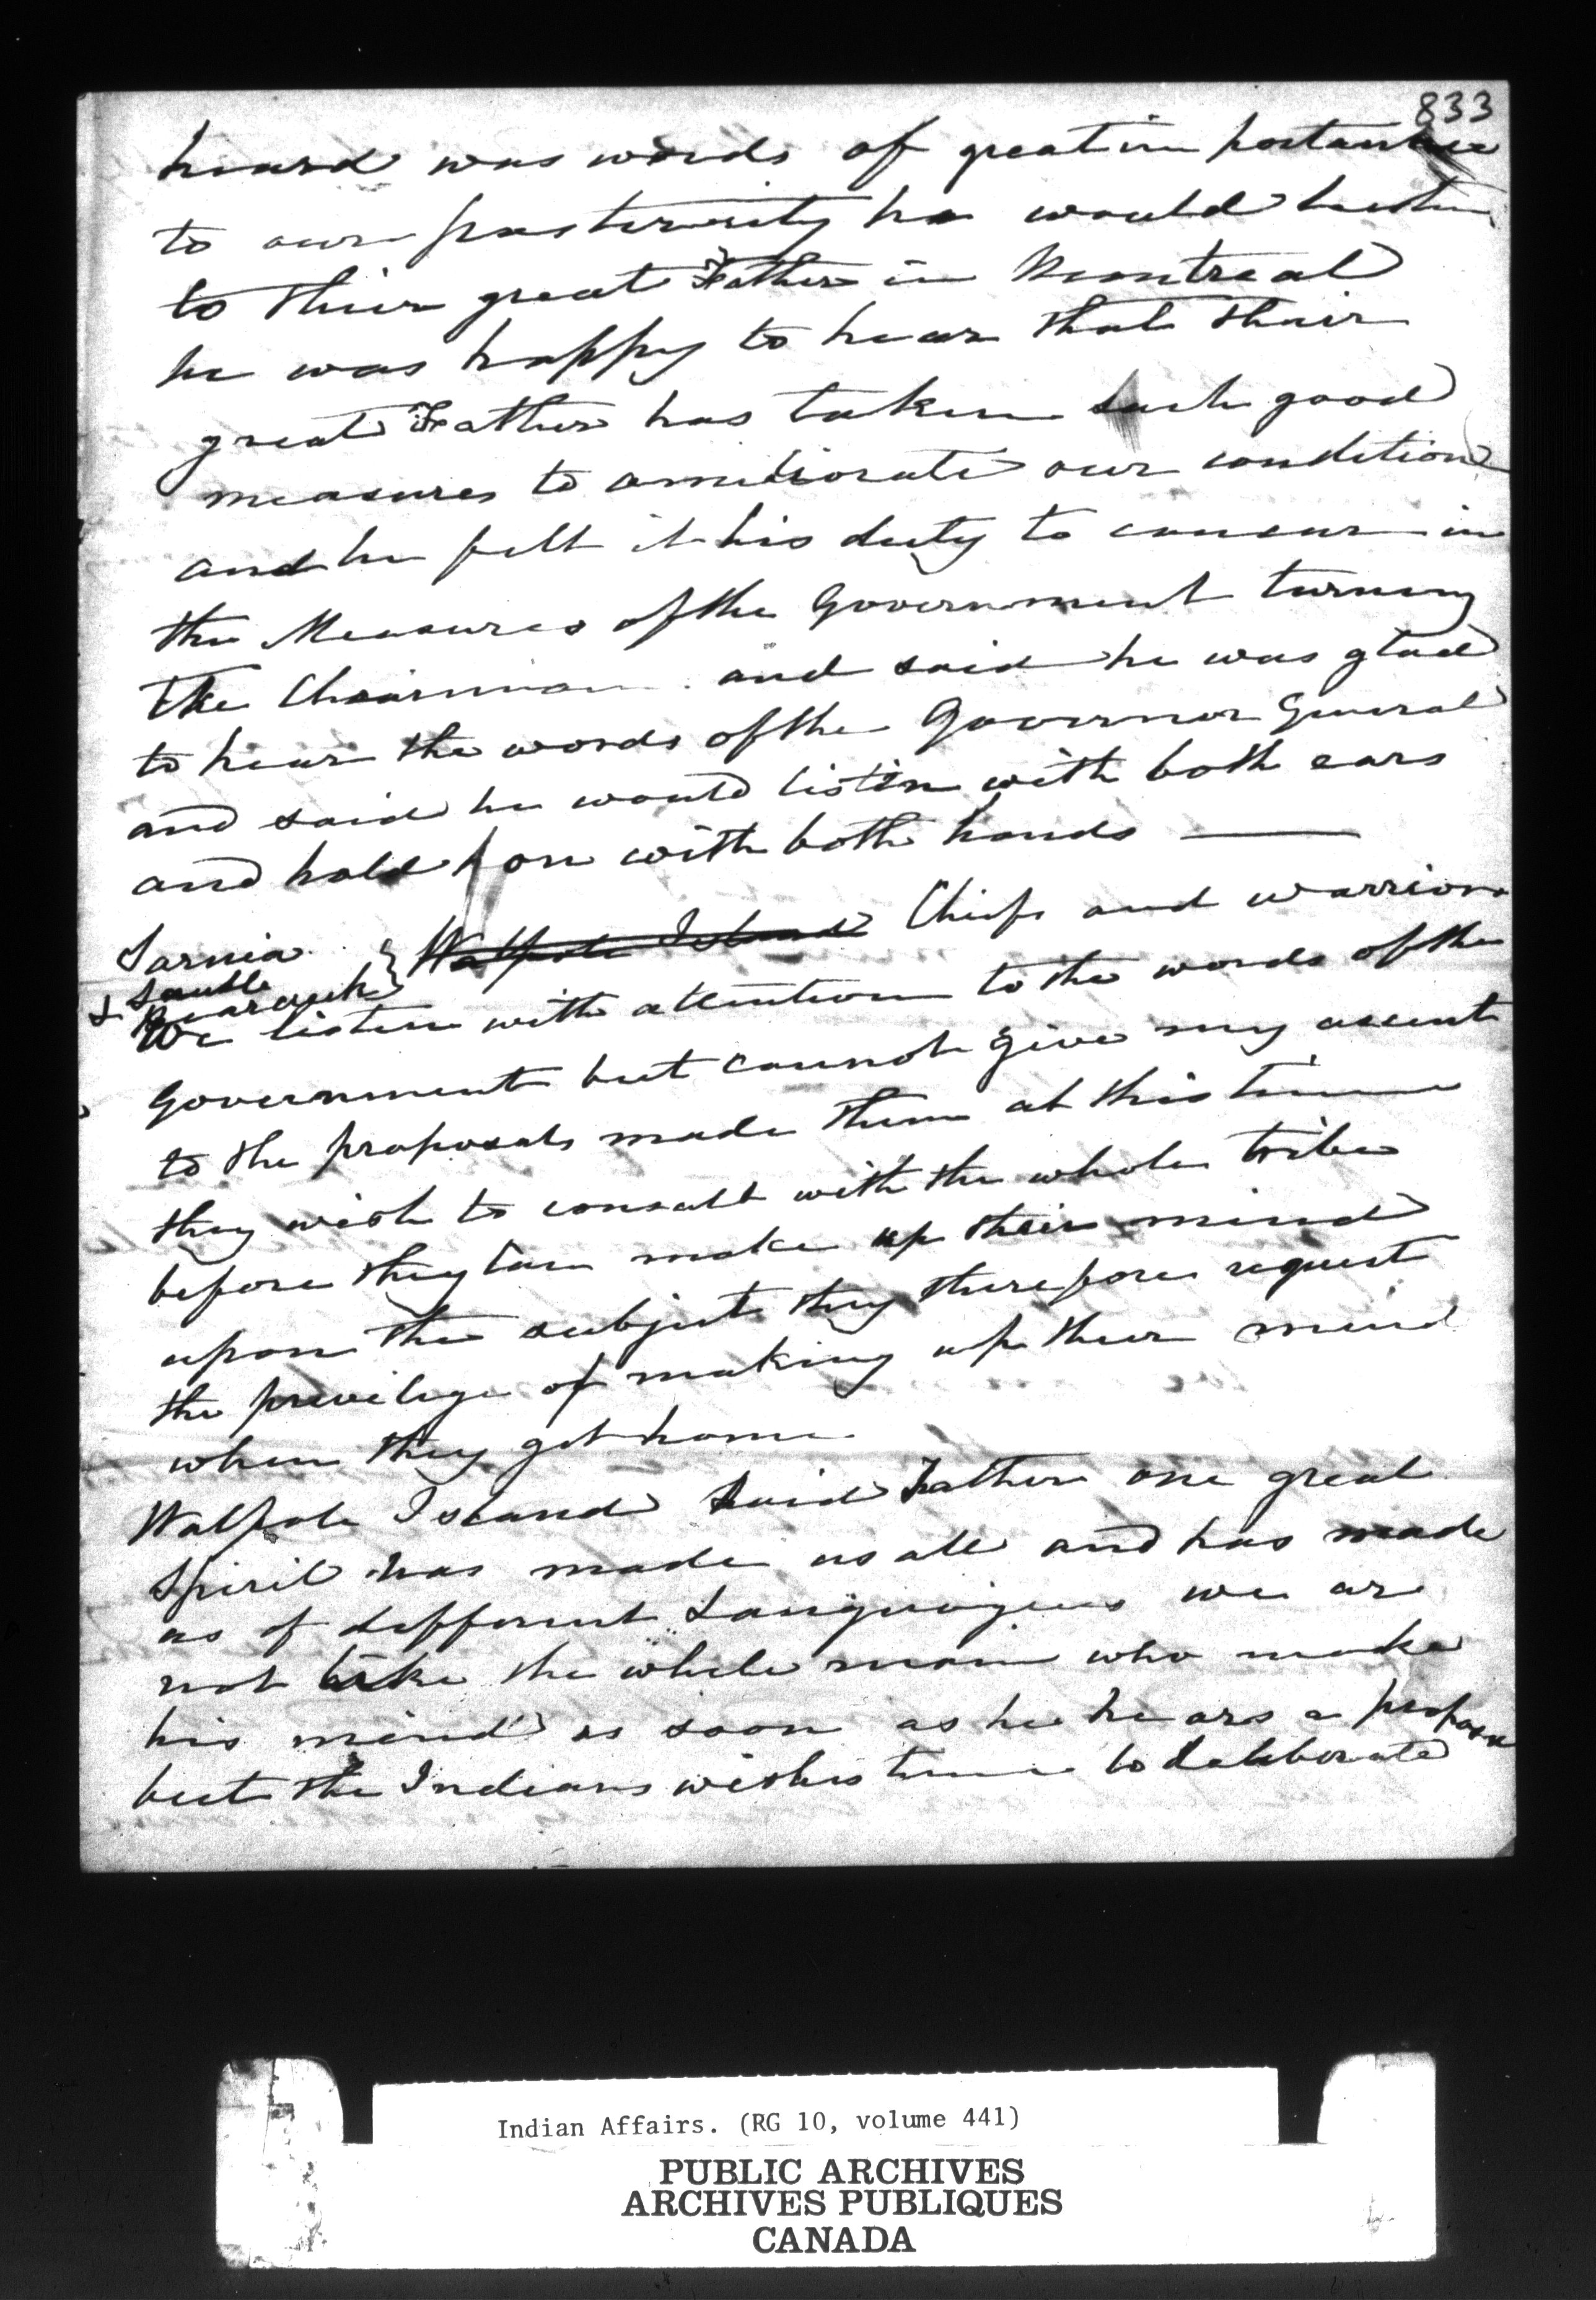 833
heard was words of great importance
to our posterity he would
to their great Father in Montreal
he was happy to hear that their
great Father has taken such good
measures to ameliorate our condition
and he felt it his duty to concur in
the Measures of the Government turning
the Chairman and said he was glad
to hear the words of the Governor General
and said he would listen with both ears
and hold on with both hands —
Sarnia } Walpole Island Chiefs and warriors
& Sauble
We listen with attention to the words of the
Government but cannot give my assent
to the proposals made them at this time
they wish to consult with the whole tribe
before they can make up their mind
upon the subject they therefore request
the privilege of making up their mind
when they got home
Walpole Island Said Father one great
Spirit has made us all and has made
us of different Languages we are
not like the white man who make
his mind as soon as he hears a
but the Indians wishes time to deliberate
Indian Affairs. (RG 10, volume 441)
PUBLIC ARCHIVES
ARCHIVES PUBLIQUES
CANADA